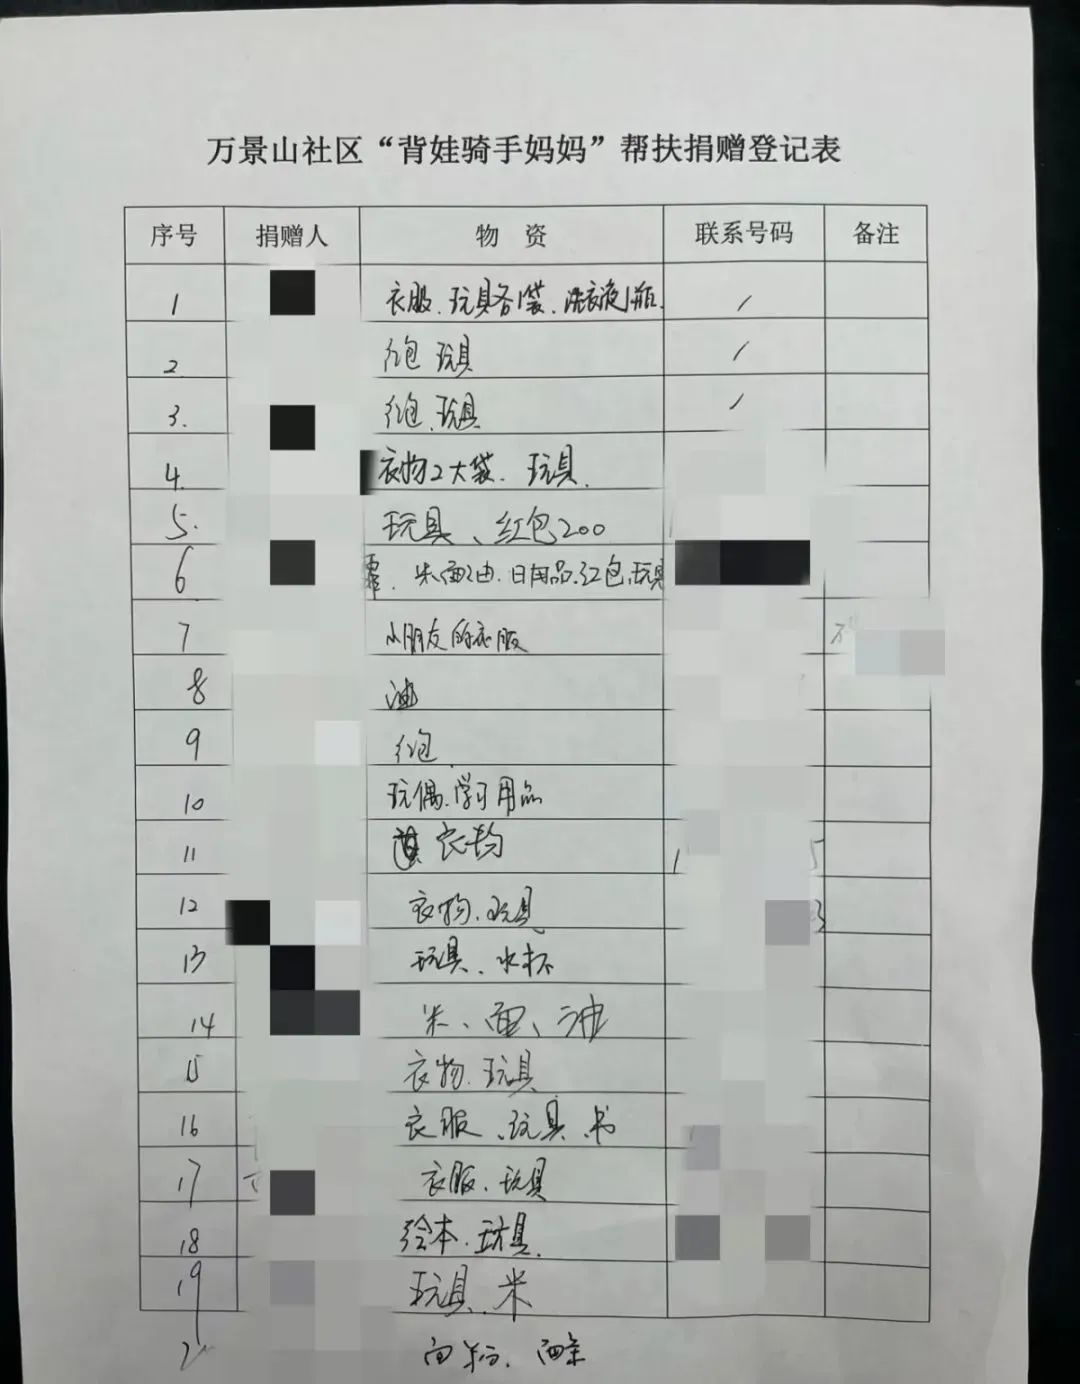 万景山社区“背娃骑手妈妈”帮扶捐赠登记表
序号 捐赠人 物 资 联系号码 备注
1 衣服、玩具各1袋、洗衣液1瓶. /
2 红包 玩具 /
3. 红包、玩具 /
4. 衣物2大袋、玩具.
5. 玩具、红包200
6 米面油、日用品、红包、玩具
7 小朋友的衣服
8 油
9 红包
10 玩偶、学习用品
11 衣物 1 5
12 衣物、玩具 3
13 玩具、水杯
14 米、面、油
15 衣物、玩具
16 衣服、玩具、书
17 衣服、玩具
18 绘本、玩具.
19 玩具、米
面条